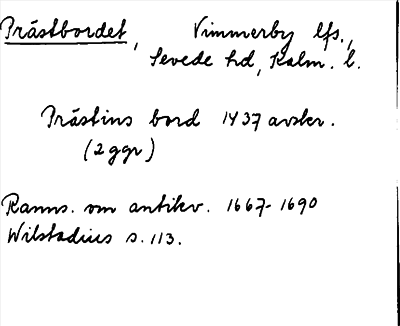 Prästbordet, Vimmerby lfs.,
Sevede hd, Kalm. l.
Prästins bord 1437 avskr.
(2 ggr)
Ranns. om antikv. 1667-1690
Wilstadius s. 113.